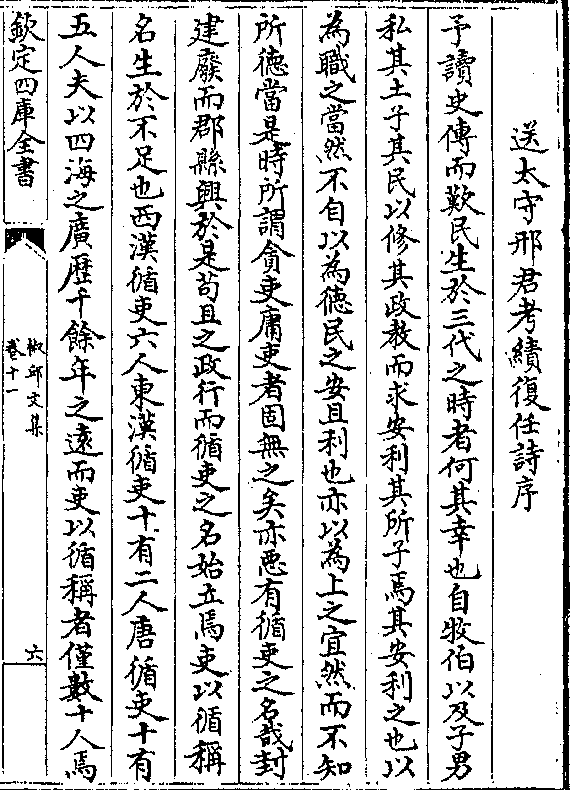 送太守邢君考績復任詩序
予讀史傳而歎民生於三代之時者何其幸也自牧伯以及子男
私其土子其民以修其政教而求安利其所子焉其安利之也以
為職之當然不自以為德民之安且利也亦以為上之宜然而不知
所德當是時所謂貪吏庸吏者固無之矣亦惡有循吏之名哉封
建廢而郡縣興於是苟且之政行而循吏之名始立焉吏以循稱
名生於不足也西漢循吏六人東漢循吏十有二人唐循吏十有
五人夫以四海之廣歷千餘年之遠而吏以循稱者僅數十人焉
欽定四庫全書
椒邱文集
卷十一
六